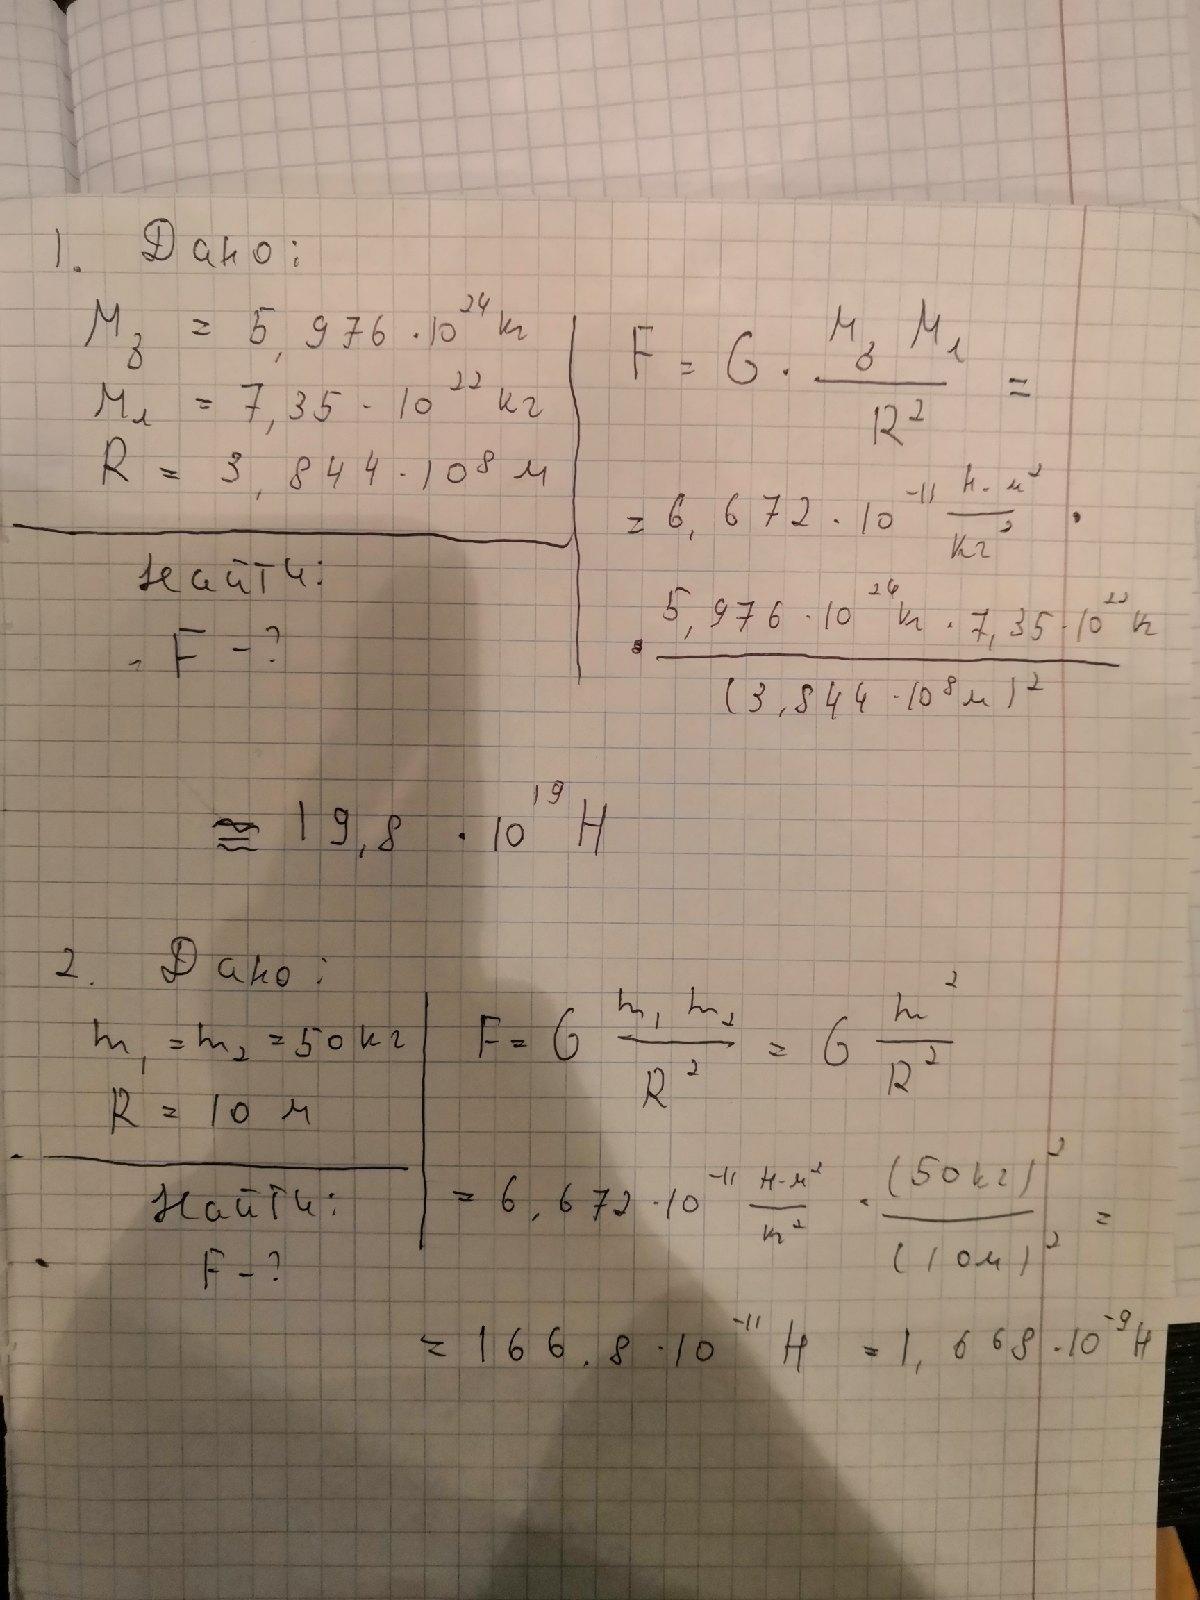 1. Дано:
M₃ = 5,976 · 10²⁴ кг
Mл = 7,35 · 10²² кг
R = 3,844 · 10⁸ м
Найти:
F - ?
F = G · M₃ Mл / R² =
= 6,672 · 10⁻¹¹ Н·м² / кг² ·
· 5,976 · 10²⁴ кг · 7,35 · 10²² кг / (3,844 · 10⁸ м)²
≅ 19,8 · 10¹⁹ Н
2. Дано:
m₁ = m₂ = 50 кг
R = 10 м
Найти:
F - ?
F = G m₁ m₂ / R² = G m² / R²
= 6,672 · 10⁻¹¹ Н·м² / кг² · (50 кг)² / (10 м)² =
= 166.8 · 10⁻¹¹ Н = 1,668 · 10⁻⁹ Н